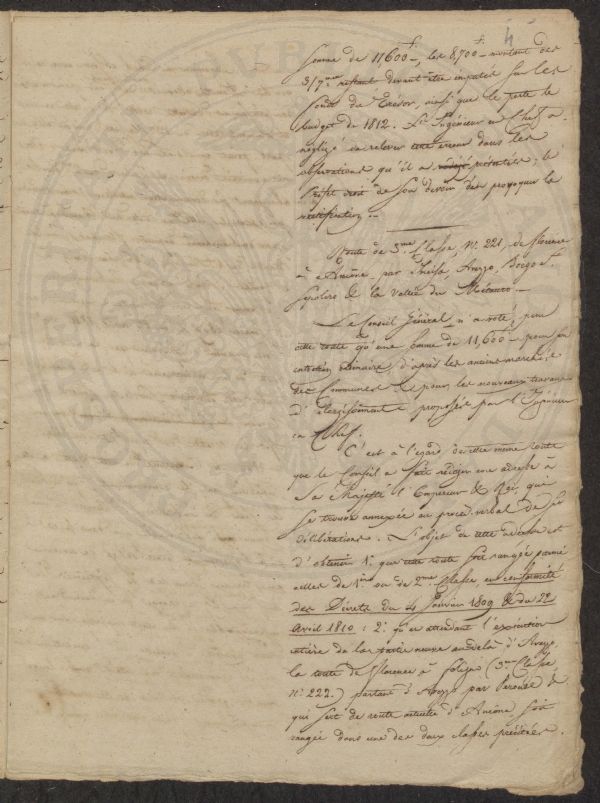 4
Somme de 11,600 f, les 8,700 f montant des
3/7mes restant devant être imputés sur les
fonds du Trésor, ainsi que le porte le
budget de 1812. L'Ingénieur en Chef a
négligé de relever cette erreur dans les
observations qu'il a rédigé ; le
Préfet croit de son devoir d'en provoquer la
rectification.
Route de 3me Classe, No 221, de Florence
à Ancône, par Arezzo, Borgo St
Sepolcro & la Vallée du Métauro.
Le Conseil Général n'a voté, pour
cette route qu'une somme de 11,600 f pour son
entretien ordinaire, d'après les anciens marchés
des Communes & pour les nouveaux travaux
d'élargissement proposés par l'Ingénieur
en Chef.
C'est à l'égard de cette même route
que le Conseil a fait rédiger une adresse à
Sa Majesté l'Empereur & Roi, qui
se trouve annexée au procès-verbal de ses
délibérations. L'objet de cette adresse est
d'obtenir 1o que cette route soit rangée parmi
celles de 1re ou de 2me Classe, en conformité
des Décrets du 4 Janvier 1809 & du 22
Avril 1810 : 2o qu'en attendant l'exécution
entière de la partie neuve au delà d'Arezzo,
la route de Florence à Foligno (3me Classe
No 222.) partant d'Arezzo par Perouse &
qui sert de route actuelle d'Ancône soit
rangée dans une des deux classes précitées.